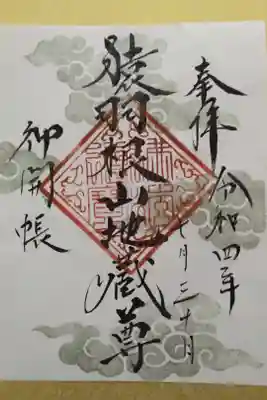 奉拝
令和四年
七月三十日
猿羽根山地蔵尊
御開帳